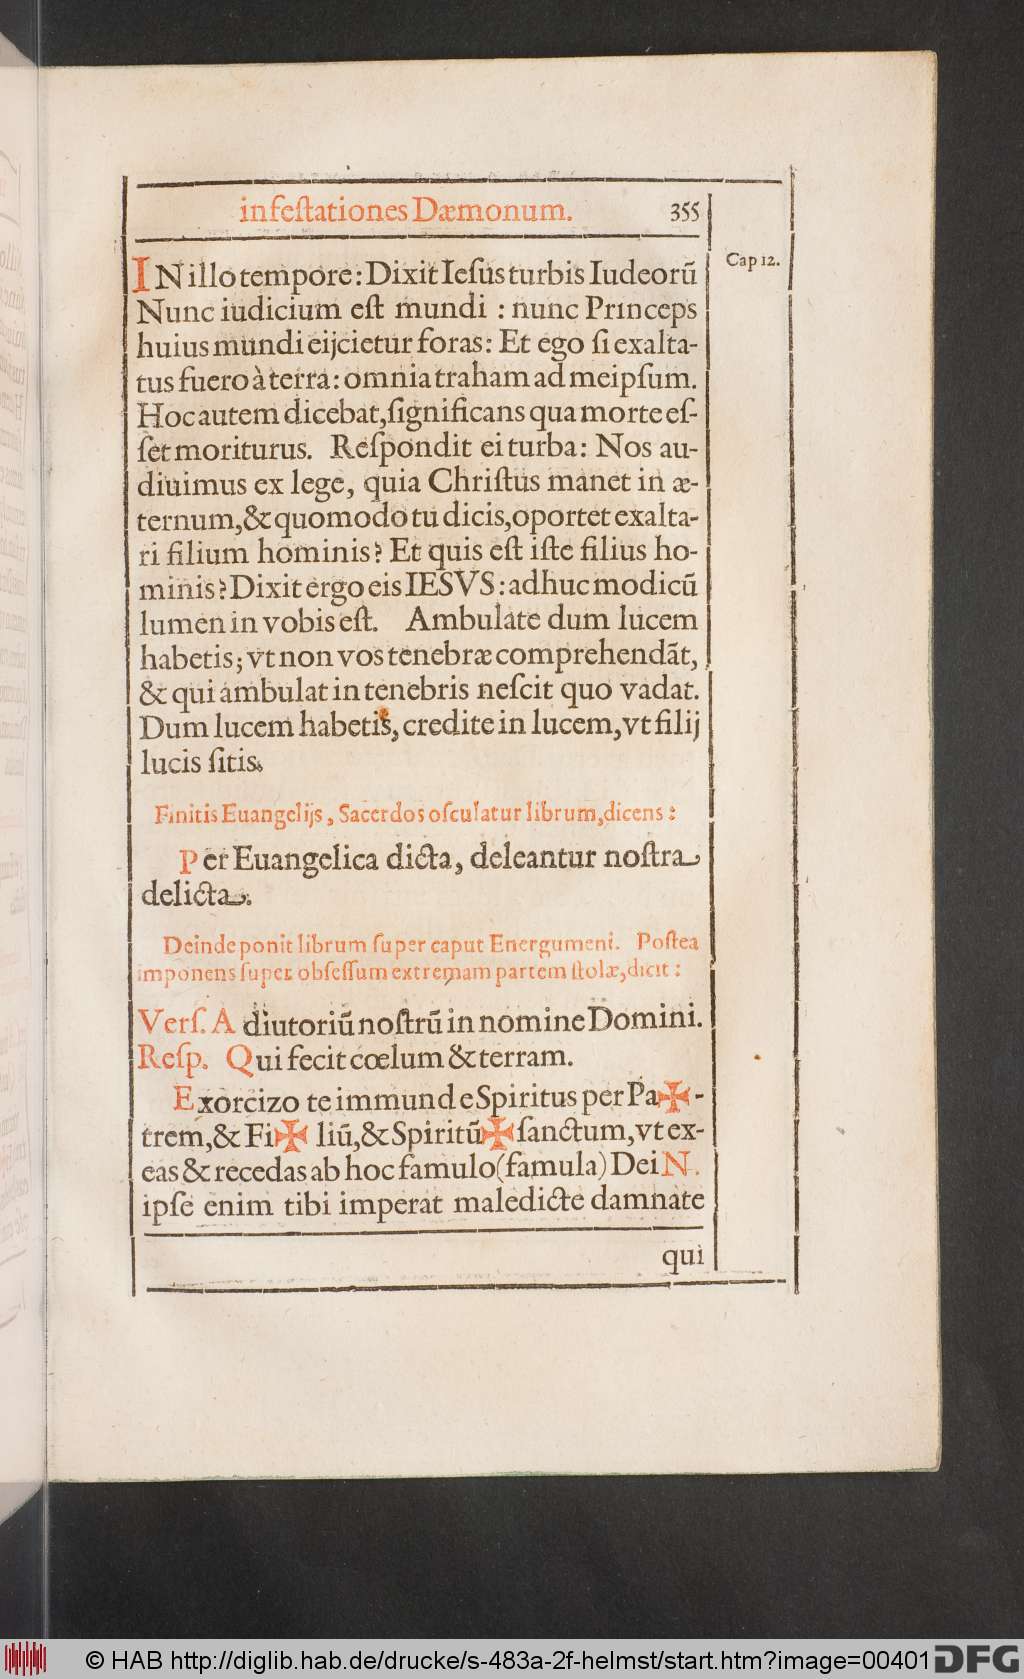 infeſtationes Dæmonum. 355
Cap 12.
IN illo tempore: Dixit Ieſus turbis Iudeorũ
Nunc iudicium eſt mundi : nunc Princeps
huius mundi eijcietur foras: Et ego ſi exalta-
tus fuero à terra: omnia traham ad meipſum.
Hoc autem dicebat, ſignificans qua morte eſ-
ſet moriturus. Reſpondit ei turba: Nos au-
diuimus ex lege, quia Chriſtus manet in æ-
ternum, & quomodo tu dicis, oportet exalta-
ri filium hominis? Et quis eſt iſte filius ho-
minis? Dixit ergo eis IESVS: adhuc modicũ
lumen in vobis eſt. Ambulate dum lucem
habetis; vt non vos tenebræ comprehendãt,
& qui ambulat in tenebris neſcit quo vadat.
Dum lucem habetis, credite in lucem, vt filij
lucis ſitis.
Finitis Euangelijs, Sacerdos oſculatur librum, dicens:
Per Euangelica dicta, deleantur noſtra
delicta.
Deinde ponit librum ſuper caput Energumeni. Poſtea
imponens ſuper obſeſſum extremam partem ſtolæ, dicit:
Verſ. Adiutoriũ noſtrũ in nomine Domini.
Reſp. Qui fecit cœlum & terram.
Exorcizo te immunde Spiritus per Pa✠-
trem, & Fi✠ liũ, & Spiritũ✠ſanctum, vt ex-
eas & recedas ab hoc famulo (famula) Dei N.
ipſe enim tibi imperat maledicte damnate
qui
© HAB http://diglib.hab.de/drucke/s-483a-2f-helmst/start.htm?image=00401 DFG